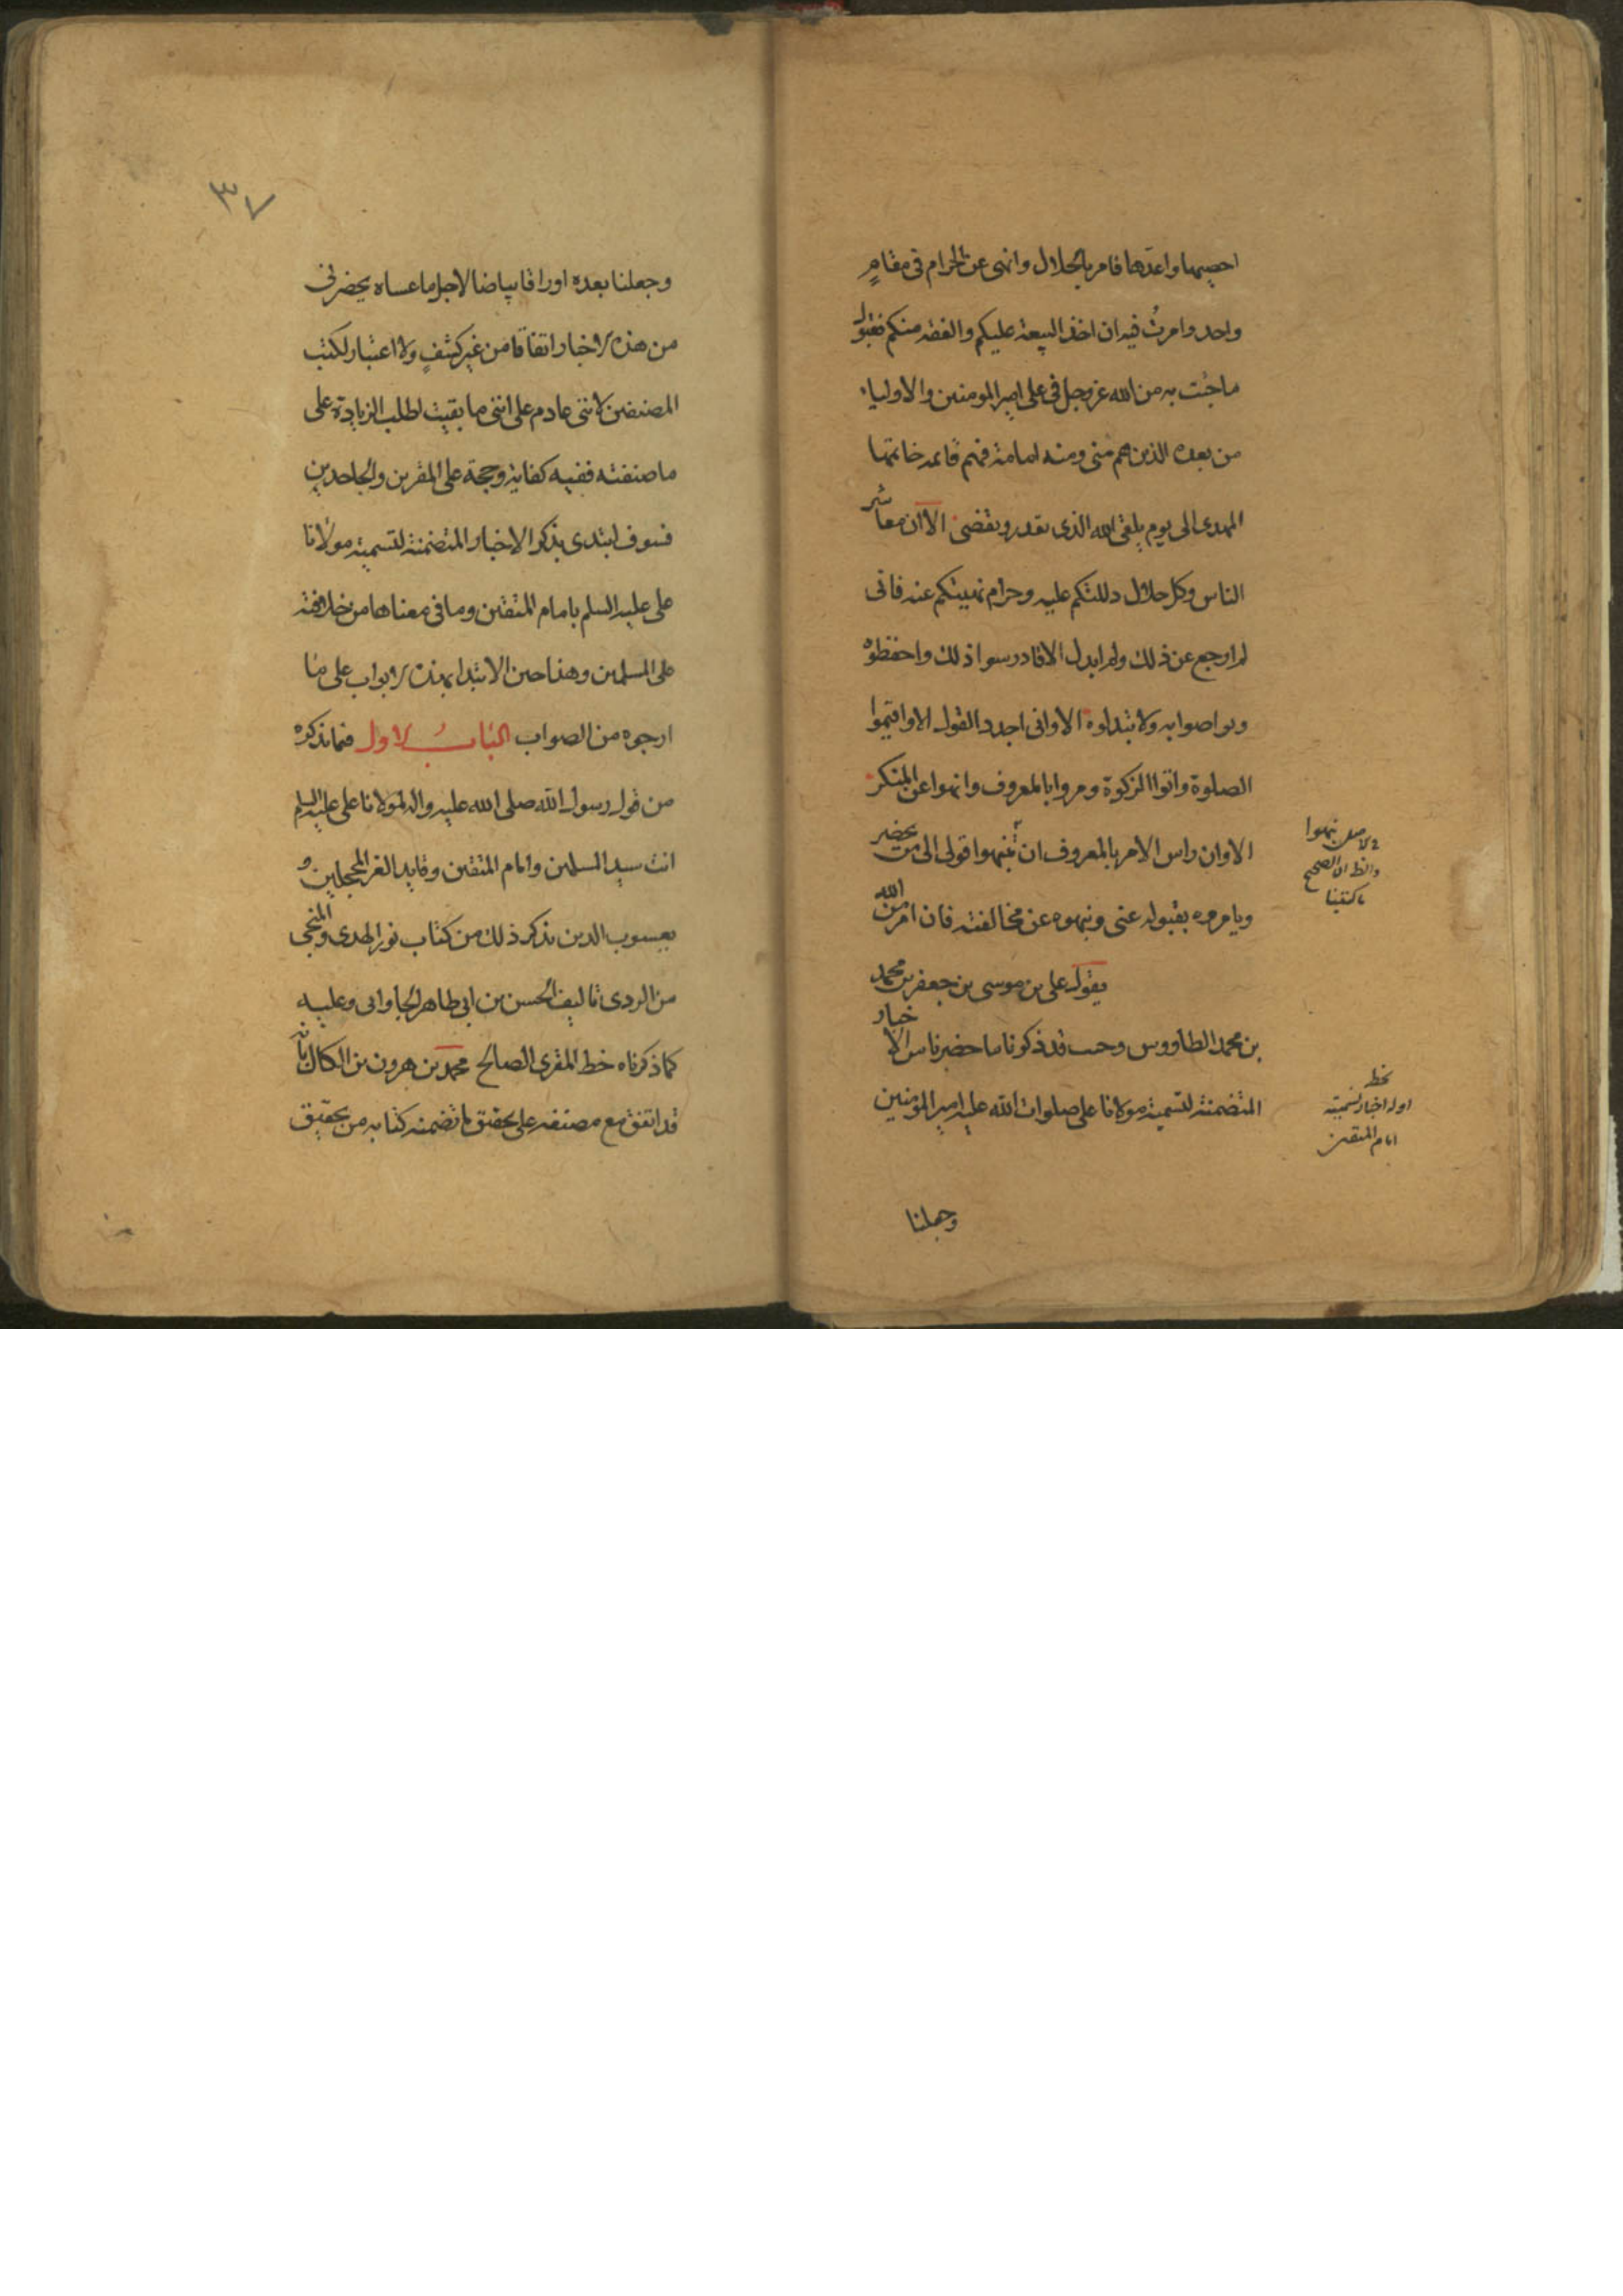 احصيها واعدها فامر بالحلال وانهى عن الحرام فى مقامٍ
واحد وامرتُ فيه ان اخذ البيعة عليكم والفقه منكم فقبول
ما جئت به من الله عز وجل فى على امير المومنين والاولياء
من بعده الذين هم منى ومنه امامة فيهم قائمه خاتمها
المهدى الى يوم يلقى الله الذى يقدر ويقضى الا ان معاشر
الناس وكل حلال دللتكم عليه وحرام نهيتكم عنه فانى
لم ارجع عن ذلك ولم ابدل الا فادرسوا ذلك واحفظوه
وتواصوا به ولا تبدلوه الا وانى اجدد القول الا واقيموا
الصلوة واتوا الزكوة ومروا بالمعروف وانهوا عن المنكر
الا وان راس الامر بالمعروف ان تنهوا قولى الى من يحضر
ويامروه بقبوله عنى وينهوه عن مخالفته فان امر من الله
يقول على بن موسى بن جعفر بن محمد
بن محمد الطاووس وحيث قد ذكرنا ما حضرنا من الاخبار
المتضمنة لتسمية مولانا على صلوات الله عليه امير المؤمنين
وجعلنا
فى الاصل تنهوا
والظ ان الصحيح
ما كتبنا
بخط
اول اخبار تسميته
امام المتقين
٣٧
وجعلنا بعده اوراقا بياضا لاجل ما عساه يحضرنى
من هذه الاخبار اتفاقا من غير كشفٍ ولا اعتبار لكتب
المصنفين لاننى عادم على اننى ما بقيت لطلب الزيادة على
ما صنفته ففيه كفاية وحجة على المقرين والجاحدين
فسوف ابتدى بذكر الاخبار المتضمنة لتسمية مولانا
على عليه السلم بامام المتقين وما فى معناها من خلافته
على المسلمين وهذا حين الابتدا بهذه الابواب على ما
ارجوه من الصواب الباب الاول فيما نذكره
من قول رسول الله صلى الله عليه واله لمولانا على عليه السلم
انت سيد المسلمين وامام المتقين وقايد الغر المحجلين و
يعسوب الدين نذكر ذلك من كتاب نور الهدى والمنجى
من الردى تاليف الحسن بن ابى طاهر الجاوابى وعليه
كما ذكرناه خط المقرى الصالح محمد بن هرون بن الكال بانه
قد اتفق مع مصنفه على تحقيق ما تضمنه كتابه من تحقيق